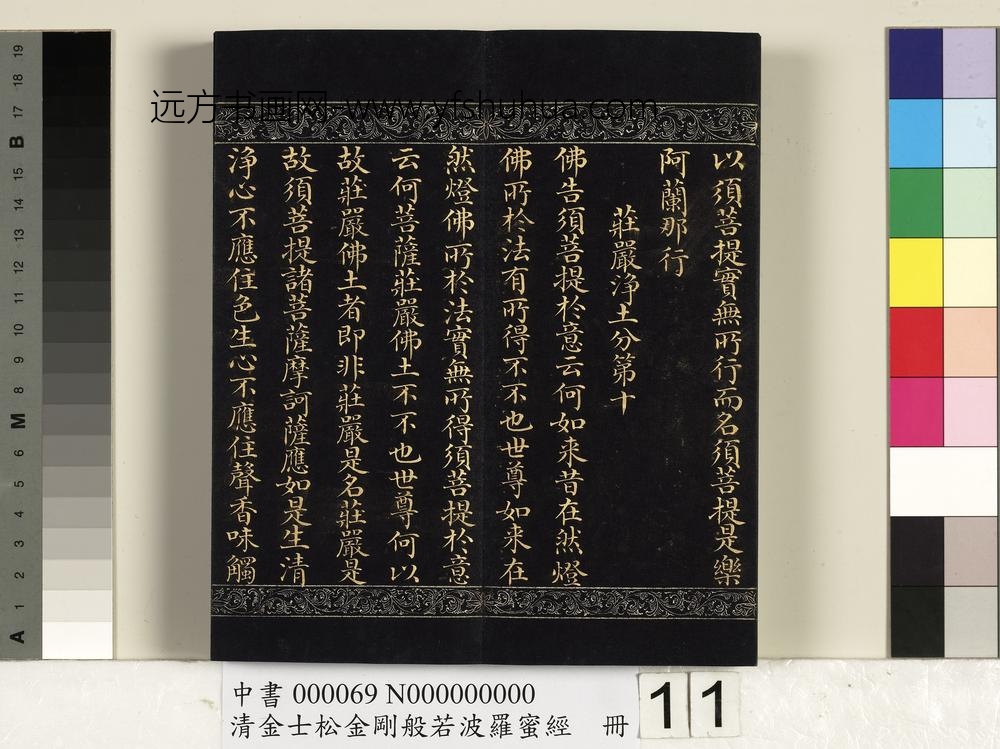 远方书画网-www.yfshuhua.com
以須菩提實無所行而名須菩提是樂
阿蘭那行
莊嚴淨土分第十
佛告須菩提於意云何如来昔在然燈
佛所於法有所得不不也世尊如来在
然燈佛所於法實無所得須菩提於意
云何菩薩莊嚴佛土不不也世尊何以
故莊嚴佛土者即非莊嚴是名莊嚴是
故須菩提諸菩薩摩訶薩應如是生清
淨心不應住色生心不應住聲香味觸
中書 000069 N000000000
清金士松金剛般若波羅蜜經 冊
11
A 1 2 3 4 5 6 M 8 9 10 11 12 13 14 15 B 17 18 19